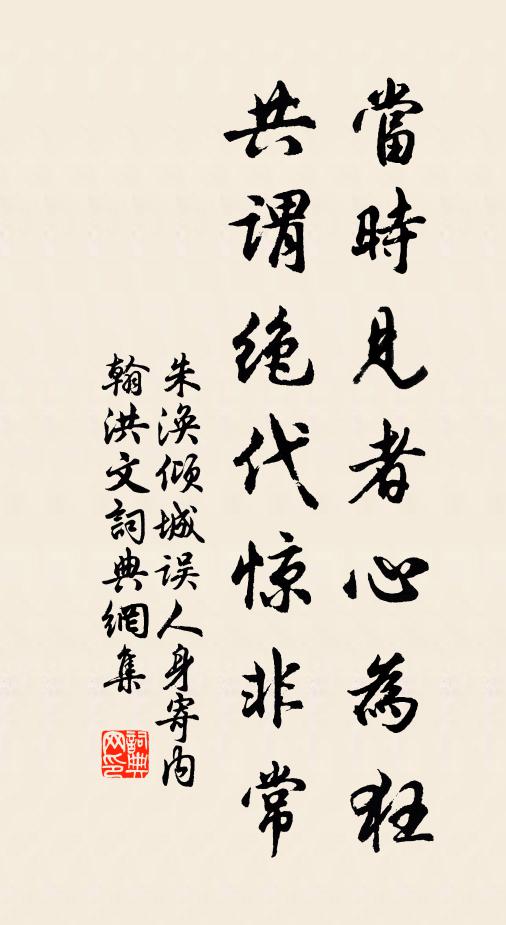 當時見者心為狂
共謂绝代惊非常
朱渙傾城误人身寄内
翰洪文詞典網集
詞典
网印